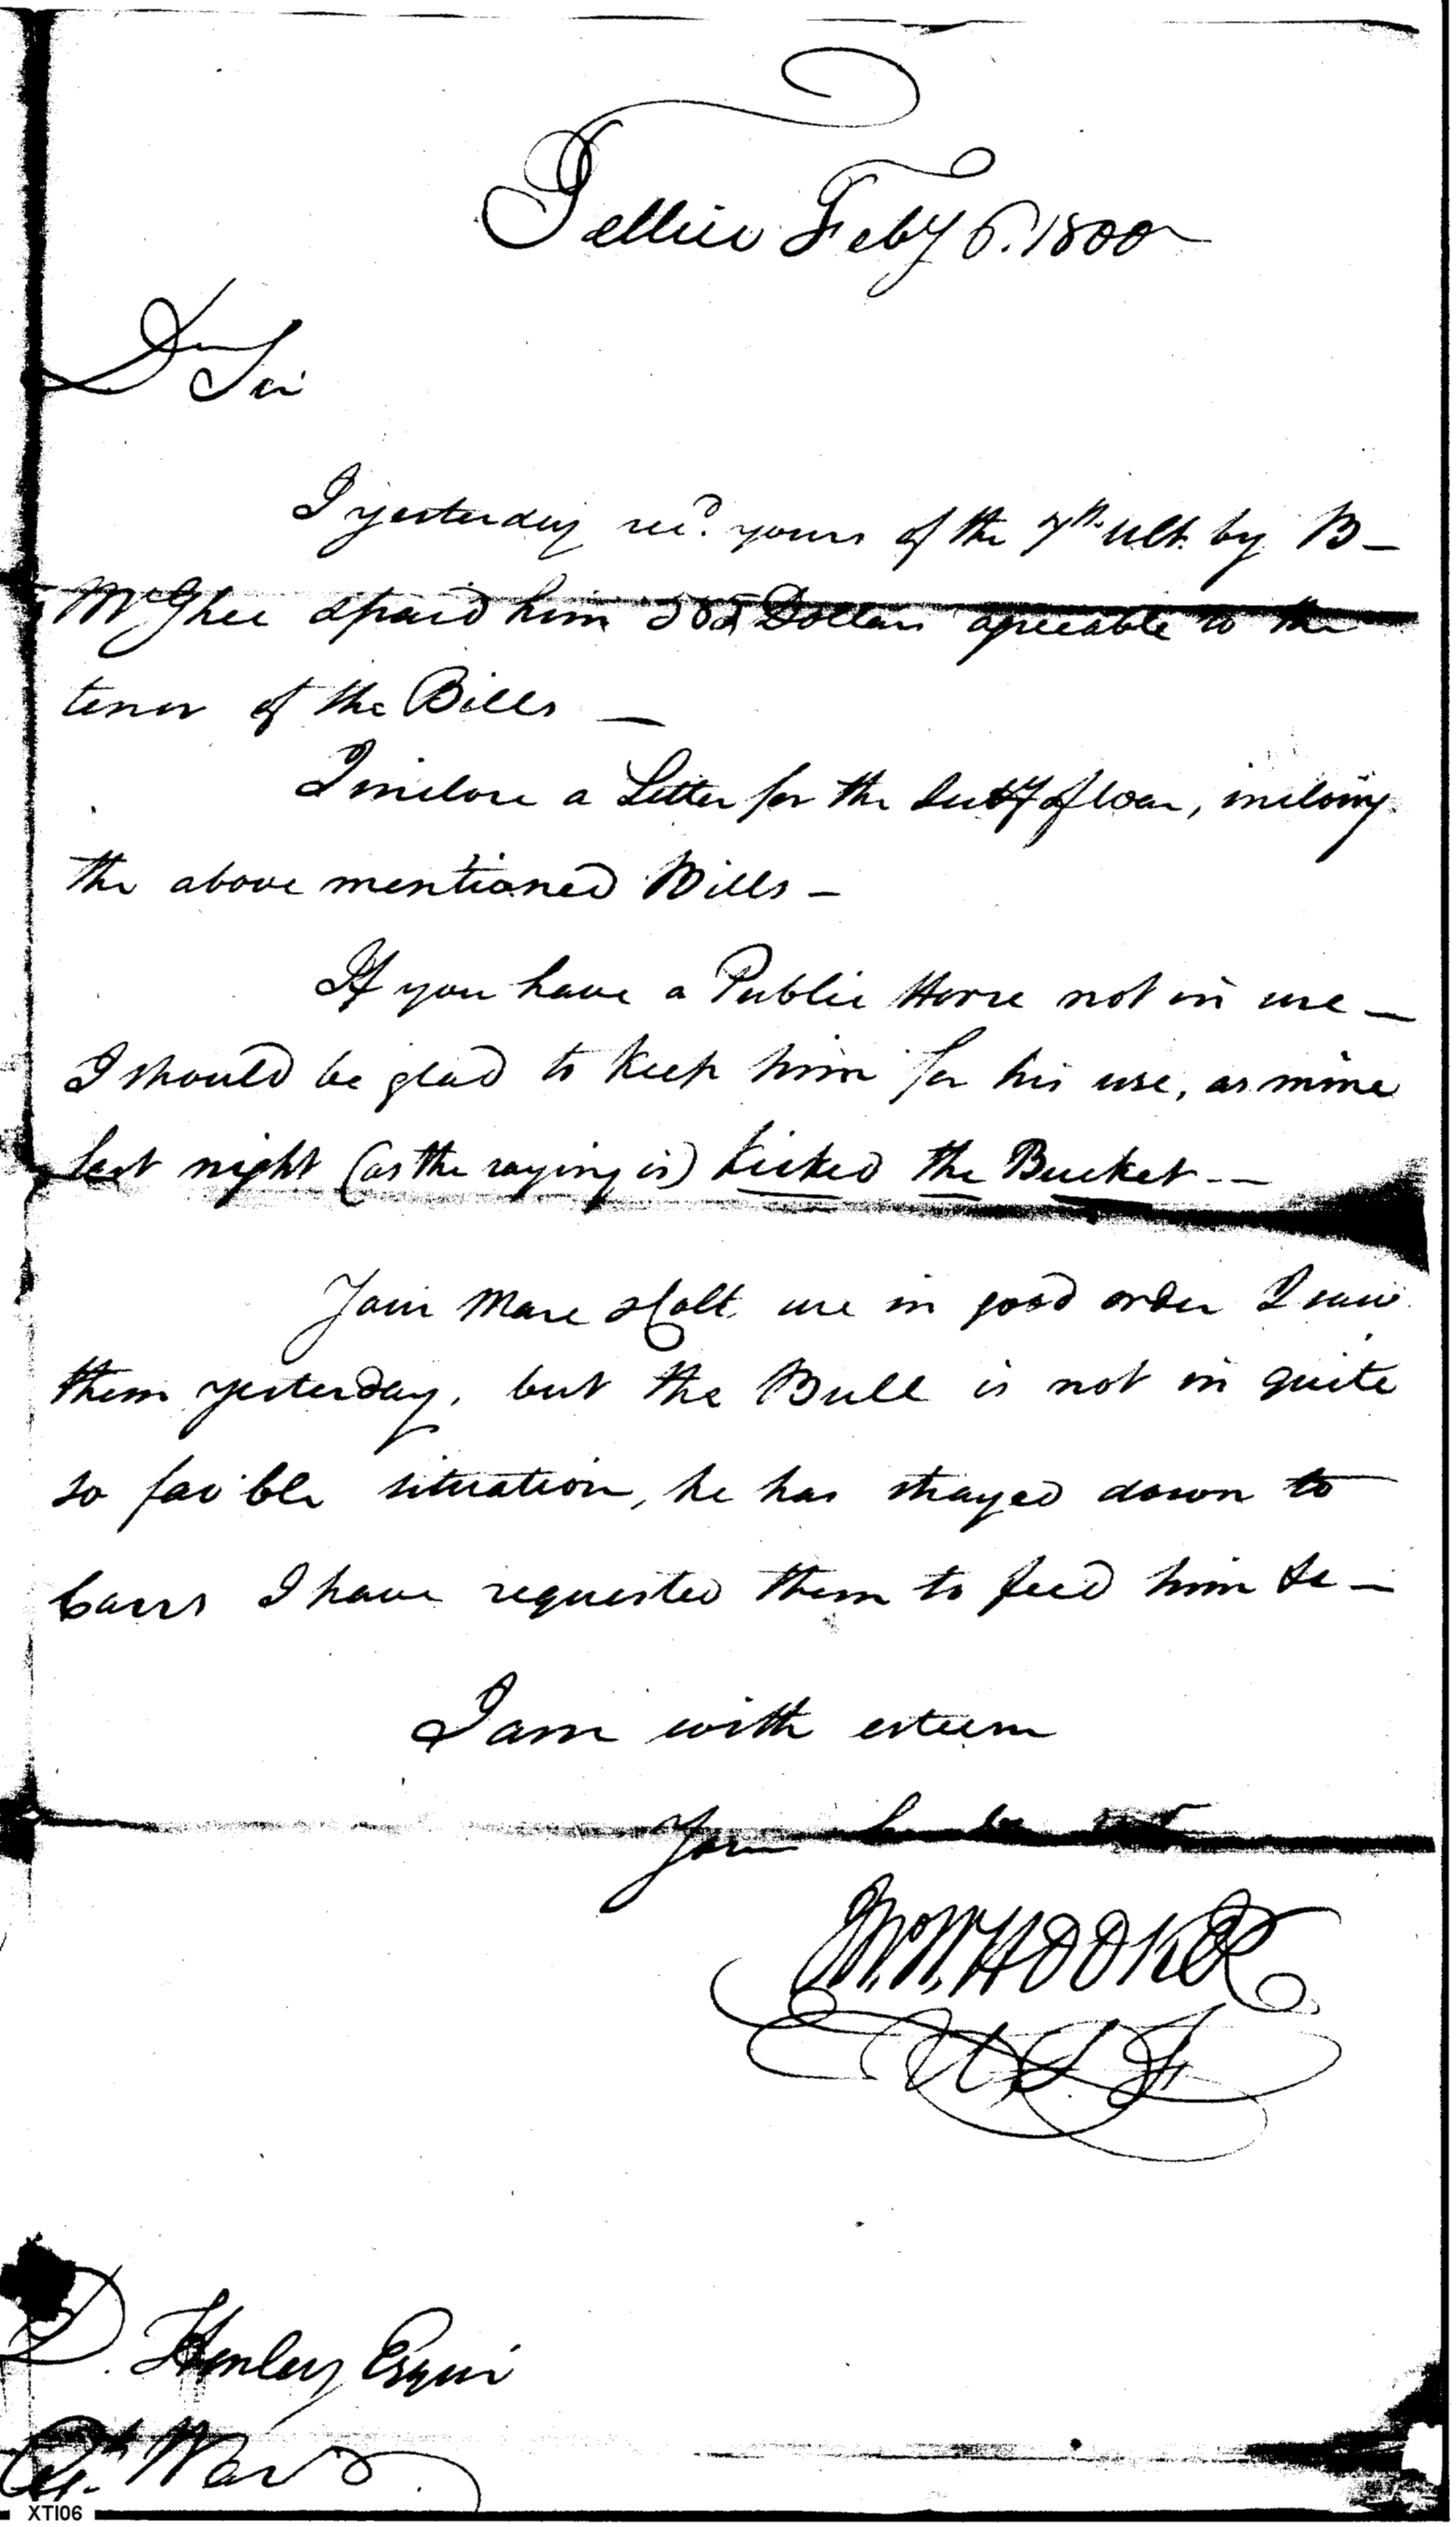 Tellico Feby 6. 1800
Dr Sir
I yesterday recd. yours of the 7th. Ult. by B—
McGhee & paid him 302 Dollars agreeable to the
tenor of the Bills —
I inclose a Letter for the Secty of War, incloing
the above mentioned Bills —
If you have a Public Horse not in use —
I should be glad to keep him for his use, as mine
last night (as the saying is) kicked the Bucket --
Your Mare & Colt are in good order I saw
them yesterday, but the Bull is not in quite
so favible situation, he has strayed down to
Carrs I have requested them to feed him &c —
I am with esteem
Your
Jno. W. HOOKER
U. S. F.
D. Henley Esquir
Agt. War D
XTI06